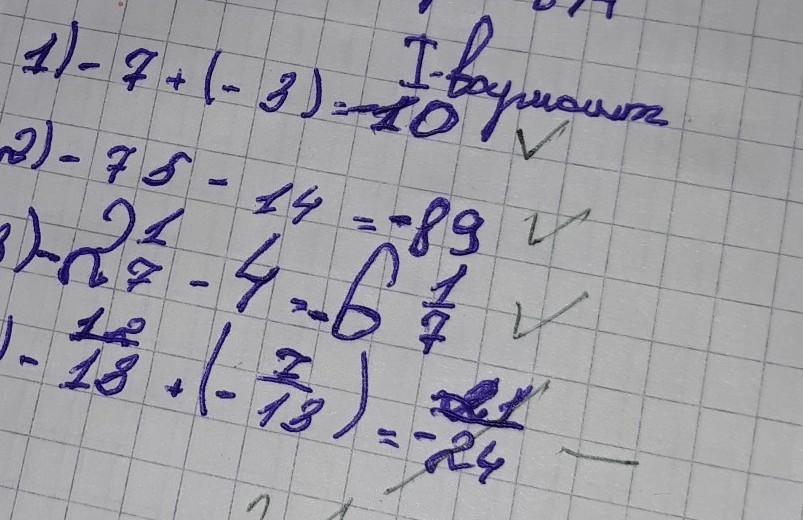 I-вариант
1) - 7 + (- 3) = -10
2) - 75 - 14 = -89
3) - 2 1/7 - 4 = -6 1/7
) - /18 + (- 7/13) = - 21/24